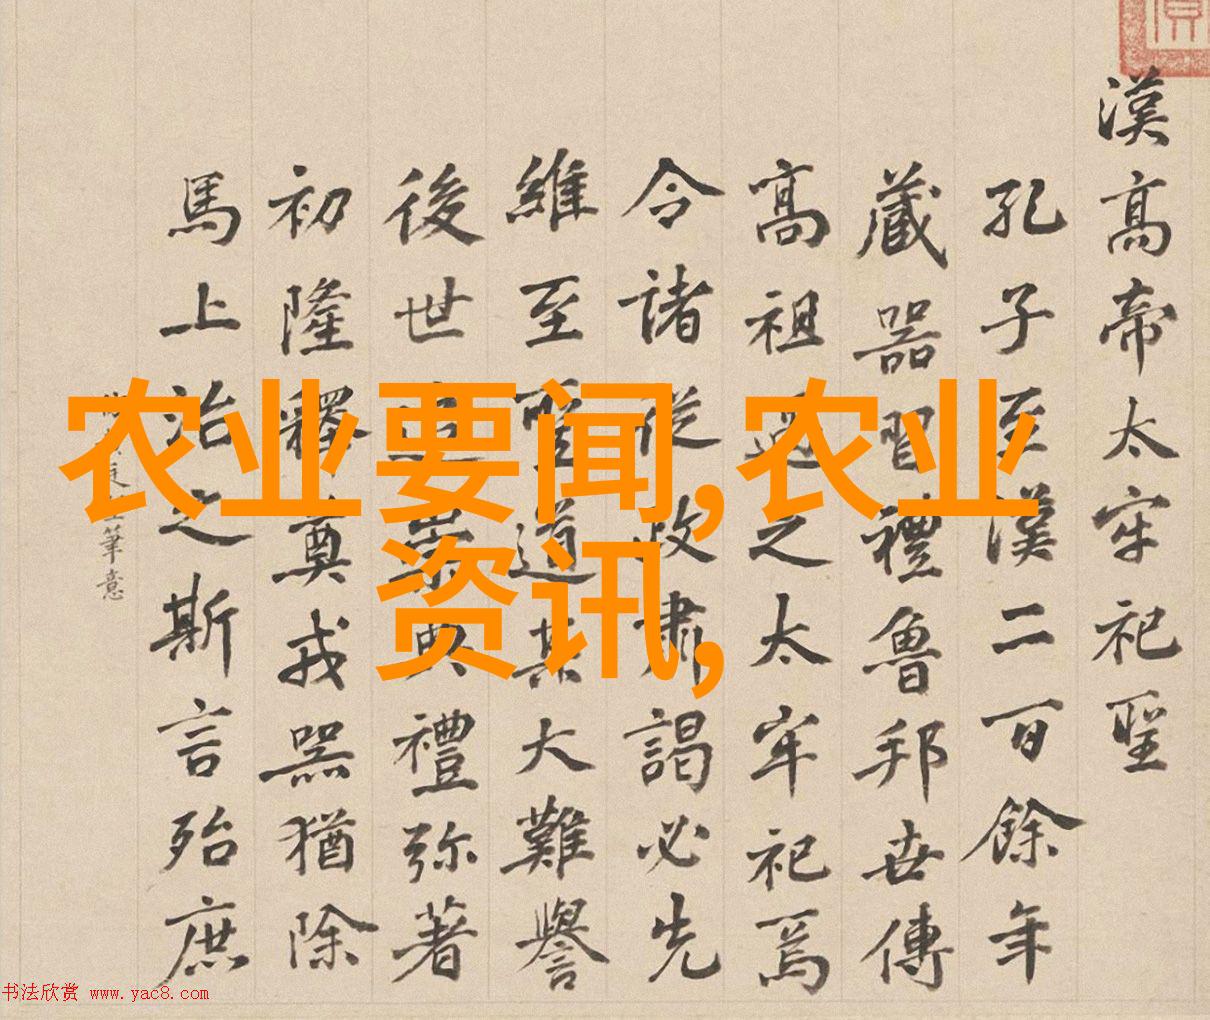 漢高帝太牢祀聖
孔子至漢二百餘年
藏器習禮魯邦世傳
高祖過之太牢祀焉
令諸從政肅謁必先
維至聖道其大難譽
後世
典禮弥著
初隆釋奠戎器猶除
馬上治之斯言殆庶
筆意
农业要闻,农业
资讯,
书法欣赏 www.yac8.com